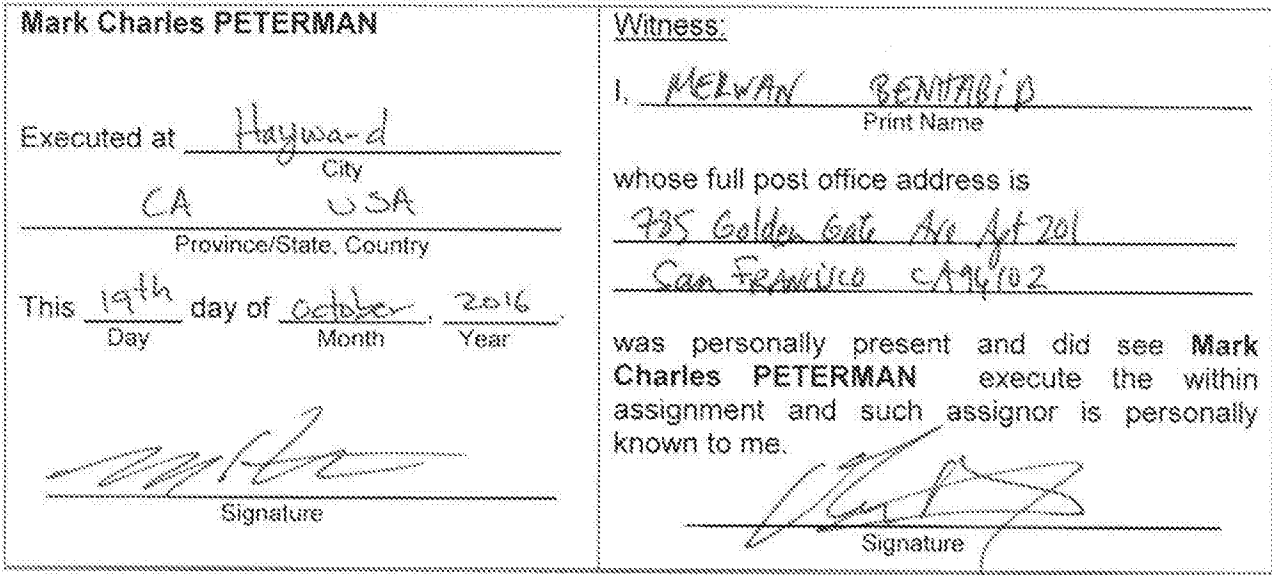 Mark Charles PETERMAN
Executed at Hayward
City
CA USA
Province/State, Country
This 19th day of October, 2016.
Day Month Year
Signature
Witness:
I, MERWAN
Print Name
whose full post office address is
785 Golden Gate Ave Apt 201
San FRANCISCO CA 94102
was personally present and did see Mark
Charles PETERMAN execute the within
assignment and such assignor is personally
known to me.
Signature